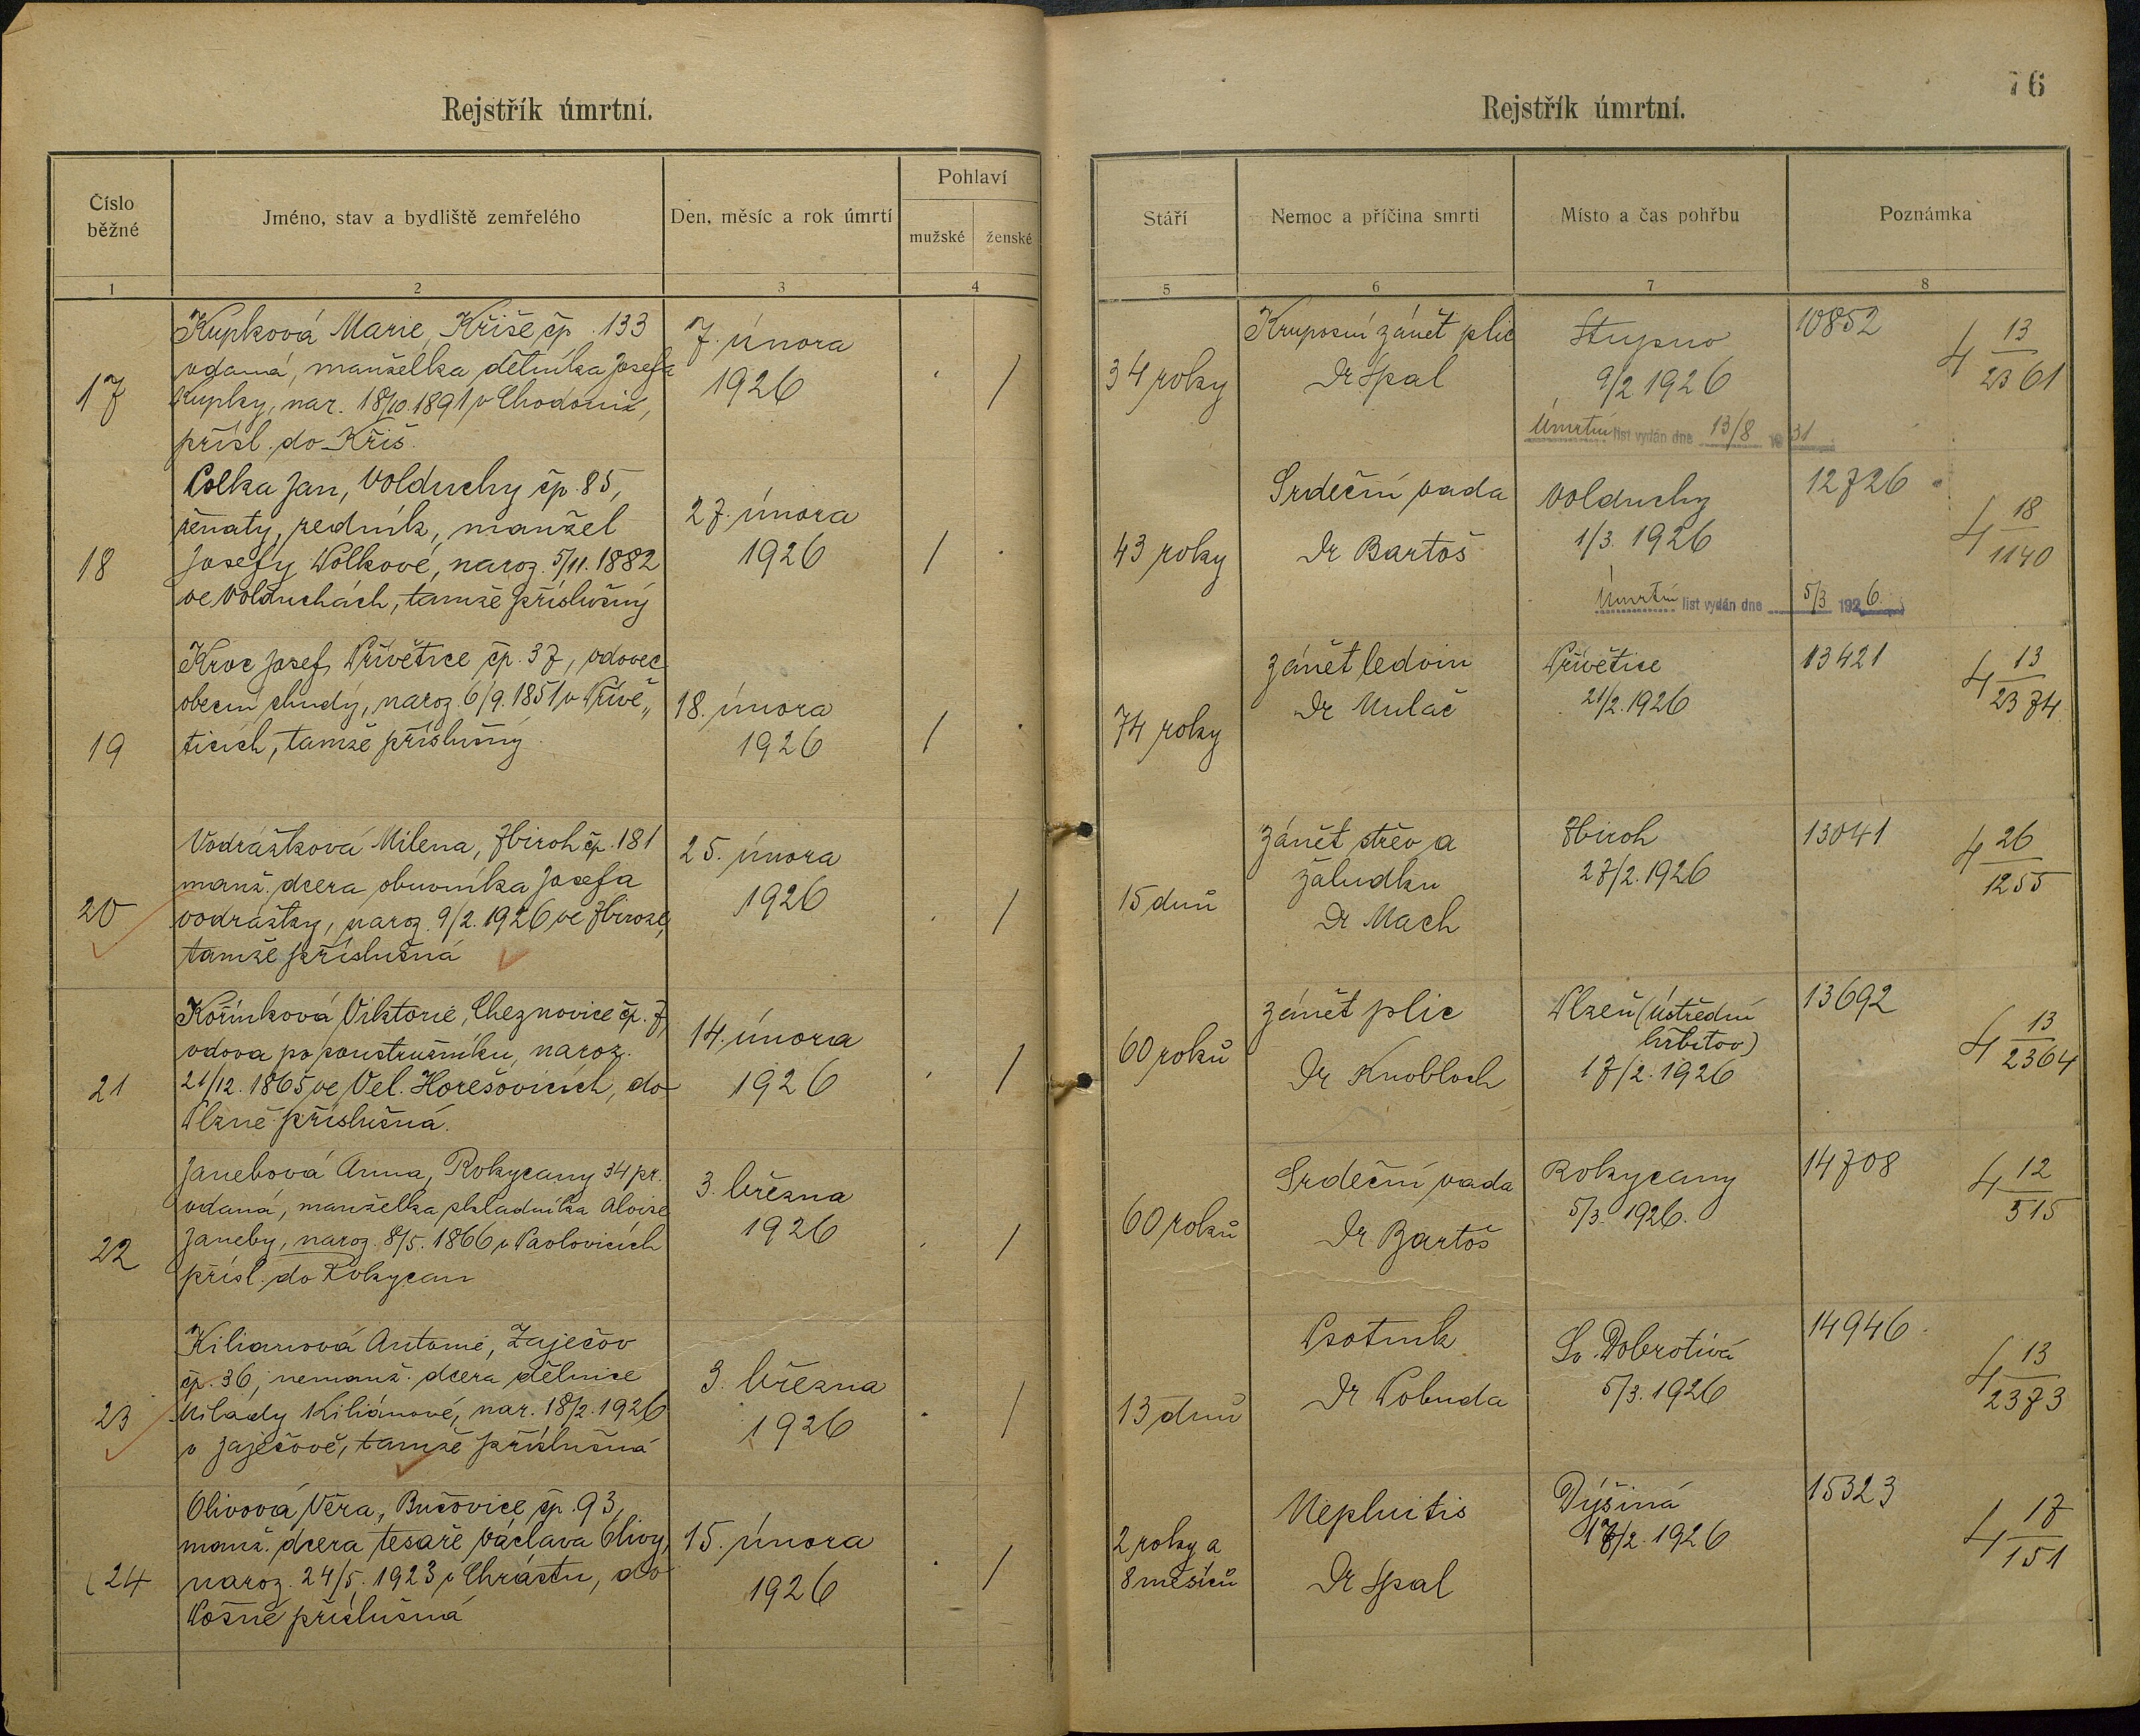 76
Rejstřík úmrtní.
Rejstřík úmrtní.
Číslo běžné
Jméno, stav a bydliště zemřelého
Den, měsíc a rok úmrtí
Pohlaví
mužské
ženské
Stáří
Nemoc a příčina smrti
Místo a čas pohřbu
Poznámka
1
2
3
4
5
6
7
8
17
Kupková Marie, Kříše čp. 133
vdaná, manželka dělníka Josefa
Kupky, nar. 18/10. 1891 v
přísl. do Kříš.
7. února
1926
/
34 roky
Kruposní zánět plic
Dr Spal
Stupno
9/2 1926
Úmrtní list vydán dne 13/8 1931
10852
4 13/2361
18
Colka Jan, Volduchy čp. 85,
ženatý, zedník, manžel
Josefy Wolkové, naroz. 5/11. 1882
ve Volduchách, tamže příslušný
27. února
1926
/
43 roky
Srdeční vada
Dr Bartoš
Volduchy
1/3. 1926
Úmrtní list vydán dne 5/3 1926.
12726
4 18/1140
19
Kroc Josef, Přívětice čp. 37, vdovec
obecní chudý, naroz. 6/9. 1851 v Přívě„
ticích, tamže příslušný.
18. února
1926
/
74 roky
Zánět ledvin
Dr Mulač
Přívětice
21/2. 1926
13421
4 13/2374
20
Vodrážková Milena, Zbiroh čp. 181
manž. dcera obuvníka Josefa
Vodrážky, naroz. 9/2. 1926 ve Zbiroze,
tamže příslušná
25. února
1926
/
15 dnů
Zánět střev a
žaludku
Dr Mach
Zbiroh
27/2. 1926
13041
4 26/1255
21
Kořínková Viktorie, Cheznovice čp. 7,
vdova po soustružníku, naroz.
21/12. 1865 ve Vel. Horešovicích, do
Plzně příslušná.
14. února
1926
/
60 roků
Zánět plic
Dr Knobloch
Plzeň (Ústřední
hřbitov)
17/2. 1926
13692
4 13/2364
22
Janebová Anna, Rokycany 34 pr.
vdaná, manželka skladníka Aloise
Janeby, naroz. 8/5. 1866 v Pavlovicích
přísl. do Rokycan
3. března
1926
/
60 roků
Srdeční vada
Dr Bartoš
Rokycany
5/3. 1926.
14708
4 12/515
23
Kilianová Antonie, Zaječov
čp. 36, nemanž. dcera dělnice
Milady Kiliánové, nar. 18/2. 1926
v Zaječově, tamže příslušná
3. března
1926
/
13 dnů
Psotník
Dr Pobuda
Sv. Dobrotivá
5/3. 1926
14946
4 13/2373
24
Olivová Věra, Bučovice čp. 93,
manž. dcera tesaře Václava Olivy,
naroz. 24/5. 1923 v Chrástu, do
příslušná
15. února
1926
/
2 roky a
8 měsíců
Nephritis
Dr Spal
Dýšiná
17/2. 1926
15323
4 17/151